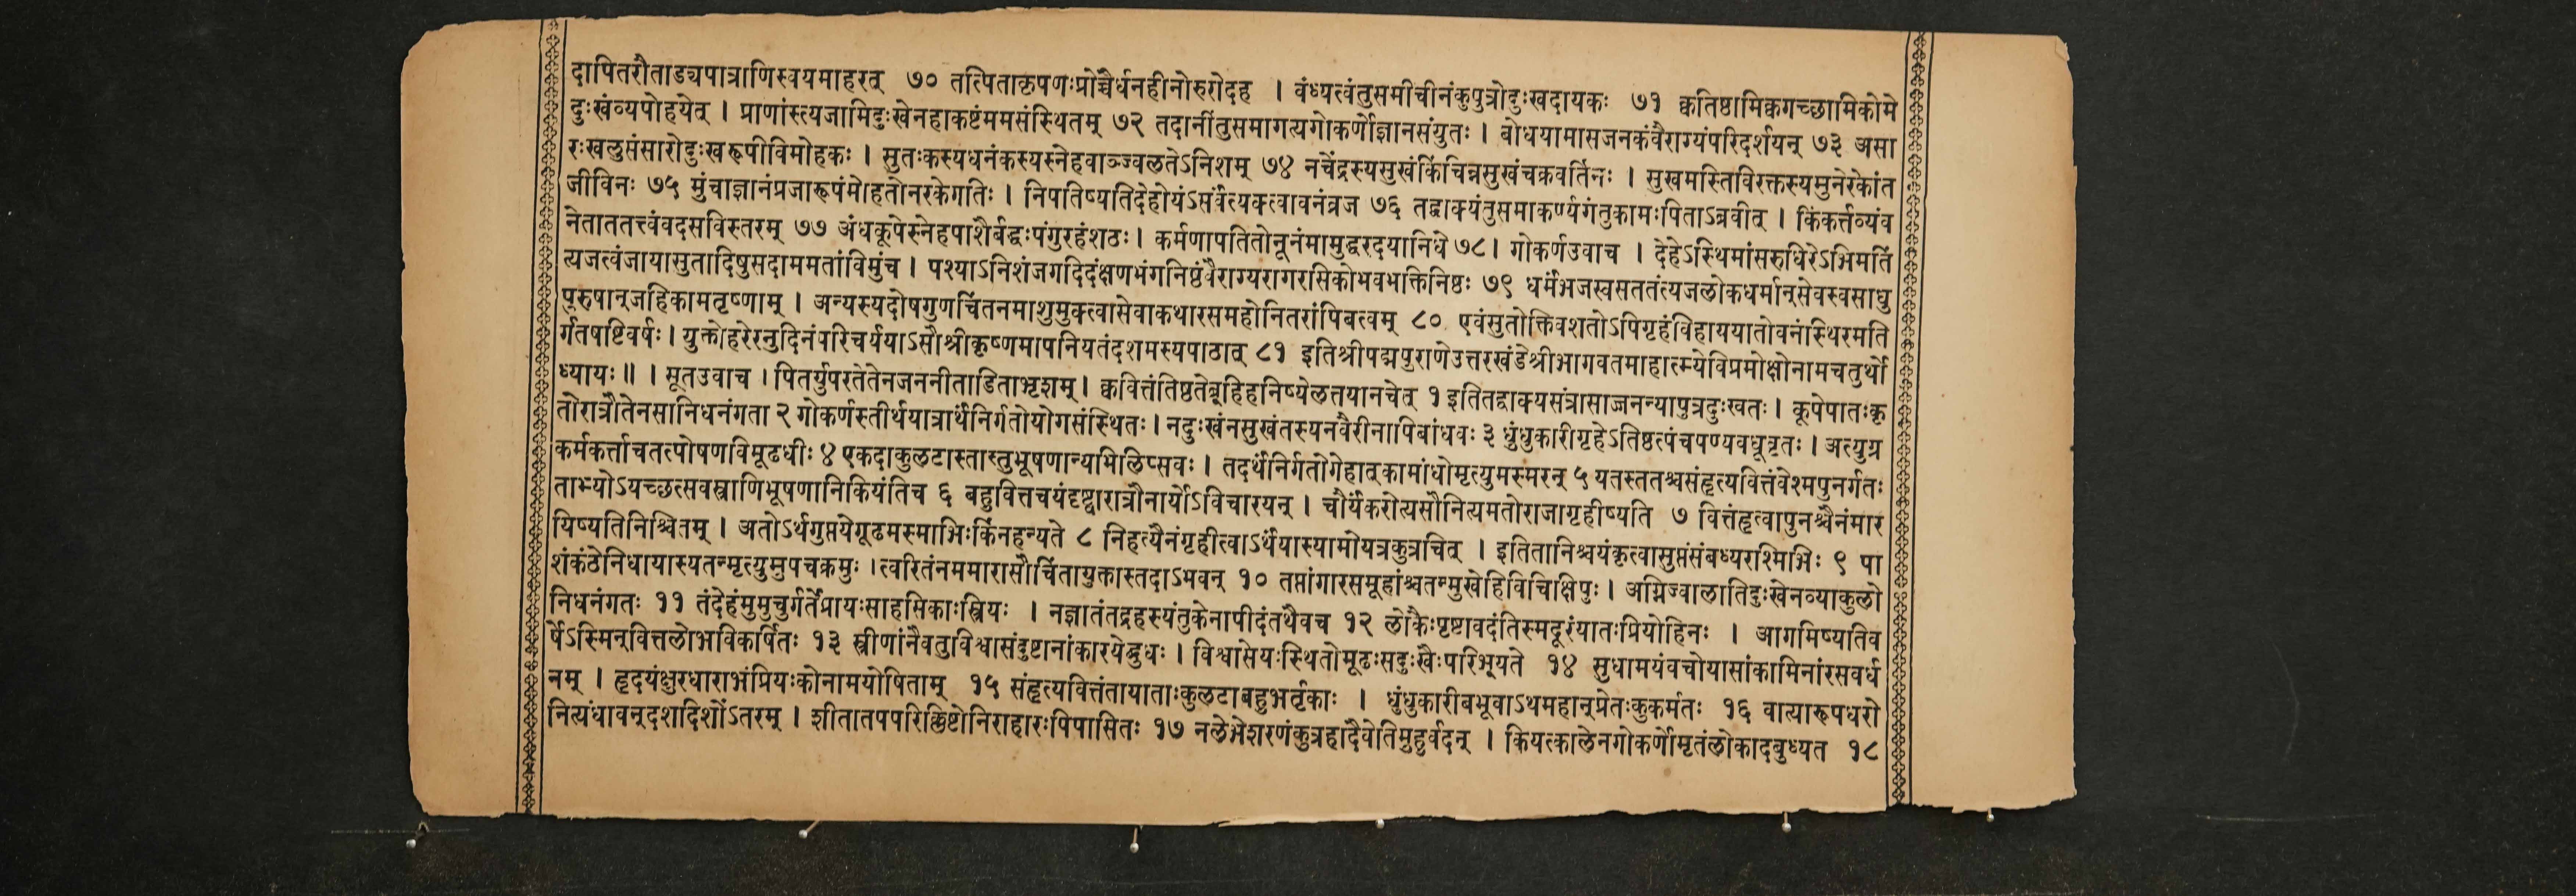 दापितरौताड्यपात्राणिस्वयमाहरत् ७० तत्पिताकृपणःप्रोच्चैर्धनहीनोरुरोदह । वंध्यत्वंतुसमीचीनंकुपुत्रोदुःखदायकः ७१ क्वतिष्ठामिक्वगच्छामिकोमे
दुःखंव्यपोहयेत् । प्राणांस्त्यजामिदुःखेनहाकष्टंममसंस्थितम् ७२ तदानींतुसमागत्यगोकर्णोज्ञानसंयुतः । बोधयामासजनकंवैराग्यंपरिदर्शयन् ७३ असा
रःखलुसंसारोदुःखरूपीविमोहकः । सुतःकस्यधनंकस्यस्नेहवाञ्ज्वलतेऽनिशम् ७४ नचेंद्रस्यसुखंकिंचिन्नसुखंचक्रवर्तिनः । सुखमस्तिविरक्तस्यमुनेरेकांत
जीविनः ७५ मुंचाज्ञानंप्रजारूपंमोहतोनरकेगतिः । निपतिष्यतिदेहोयंऽसर्वंत्यक्त्वावनंव्रज ७६ तद्वाक्यंतुसमाकर्ण्यगंतुकामःपिताऽब्रवीत् । किंकर्त्तव्यंव
नेताततत्त्वंवदसविस्तरम् ७७ अंधकूपेस्नेहपाशैर्बद्धःपंगुरहंशठः । कर्मणापतितोनूनंमामुद्धरदयानिधे ७८। गोकर्णउवाच । देहेऽस्थिमांसरुधिरेऽभिमतिं
त्यजत्वंजायासुतादिषुसदाममतांविमुंच । पश्याऽनिशंजगदिदंक्षणभंगनिष्ठंवैराग्यरागरसिकोभवभक्तिनिष्ठः ७९ धर्मंभजस्वसततंत्यजलोकधर्मान्सेवस्वसाधु
पुरुषान्जहिकामतृष्णाम् । अन्यस्यदोषगुणचिंतनमाशुमुक्त्वासेवाकथारसमहोनितरांपिबत्वम् ८० एवंसुतोक्तिवशतोऽपिगृहंविहाययातोवनंस्थिरमति
र्गतषष्टिवर्षः । युक्तोहरेरनुदिनंपरिचर्ययाऽसौश्रीकृष्णमापनियतंदशमस्यपाठात् ८१ इतिश्रीपद्मपुराणेउत्तरखंडेश्रीभागवतमाहात्म्येविप्रमोक्षोनामचतुर्थो
ध्यायः॥ । सूतउवाच । पितर्युपरतेतेनजननीताडिताभृशम् । क्ववित्तंतिष्ठतेब्रूहिहनिष्येलत्तयानचेत् १ इतितद्वाक्यसंत्रासाज्जनन्यापुत्रदुःखतः । कूपेपातःकृ
तोरात्रौतेनसानिधनंगता २ गोकर्णस्तीर्थयात्रार्थंनिर्गतोयोगसंस्थितः । नदुःखंनसुखंतस्यनवैरीनापिबांधवः ३ धुंधुकारीगृहेऽतिष्ठत्पंचपण्यवधूवृतः । अत्युग्र
कर्मकर्त्ताचतत्पोषणविमूढधीः ४ एकदाकुलटास्तास्तुभूषणान्यभिलिप्सवः । तदर्थंनिर्गतोगेहात्कामांधोमृत्युमस्मरन् ५ यतस्ततश्चसंहृत्यवित्तंवेश्मपुनर्गतः
ताभ्योऽयच्छत्सवस्त्राणिभूषणानिकियंतिच ६ बहुवित्तचयंदृष्ट्वारात्रौनार्योऽविचारयन् । चौर्यंकरोत्यसौनित्यमतोराजागृहीष्यति ७ वित्तंहृत्वापुनश्चैनंमार
यिष्यतिनिश्चितम् । अतोऽर्थगुप्तयेगूढमस्माभिःकिंनहन्यते ८ निहत्यैनंगृहीत्वाऽर्थंयास्यामोयत्रकुत्रचित् । इतितानिश्चयंकृत्वासुप्तंसंबध्यरश्मिभिः ९ पा
शंकंठेनिधायास्यतन्मृत्युमुपचक्रमुः ।त्वरितंनममारासौचिंतायुक्तास्तदाऽभवन् १० तप्तांगारसमूहांश्चतन्मुखेहिविचिक्षिपुः । अग्निज्वालातिदुःखेनव्याकुलो
निधनंगतः ११ तंदेहंमुमुचुर्गर्तेप्रायःसाहसिकाःस्त्रियः । नज्ञातंतद्रहस्यंतुकेनापीदंतथैवच १२ लोकैःपृष्टावदंतिस्मदूरंयातःप्रियोहिनः । आगमिष्यतिव
र्षेऽस्मिन्वित्तलोभविकर्षितः १३ स्त्रीणांनैवतुविश्वासंदुष्टानांकारयेद्बुधः । विश्वासेयःस्थितोमूढःसदुःखैःपरिभूयते १४ सुधामयंवचोयासांकामिनांरसवर्ध
नम् । हृदयंक्षुरधाराभंप्रियःकोनामयोषिताम् १५ संहृत्यवित्तंतायाताःकुलटाबहुभर्तृकाः । धुंधुकारीबभूवाऽथमहान्प्रेतःकुकर्मतः १६ वात्यारूपधरो
नित्यंधावन्दशदिशोंऽतरम् । शीतातपपरिक्लिष्टोनिराहारःपिपासितः १७ नलेभेशरणंकुत्रहादैवेतिमुहुर्वदन् । कियत्कालेनगोकर्णोमृतंलोकादबुध्यत १८